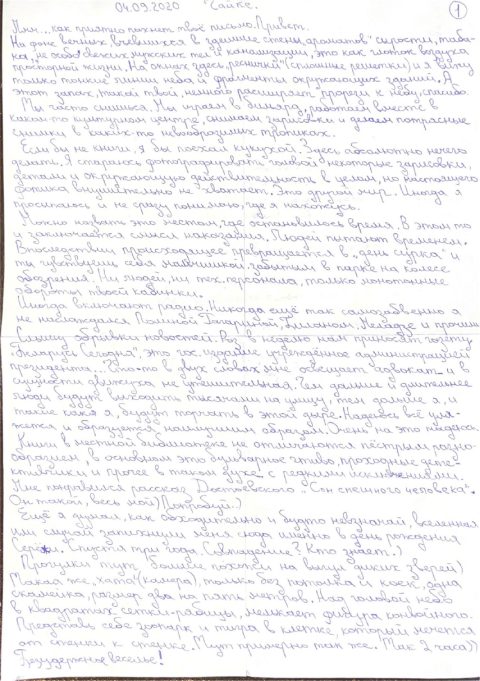 04.09.2020 Сайке. 1
Ммм... как приятно пахнет твоё письмо. Привет.
На фоне вечных въевшихся в здешние стены "ароматов" сырости, таба-
ка, не особо свежих мужских тел и канализации, это как глоток воздуха
просторной жизни. На окнах здесь "реснички" (сплошные решетки) и я вижу
только тонкие линии неба и фрагменты окружающих зданий. А
этот запах, такой твой, немного расширяет прорези к небу, спасибо.
Мы часто снишься. Мы играем в бильярд, работаем вместе в
каком-то культурном центре, снимаем зарисовки и делаем потрясные
снимки в каких-то невообразимых тропиках.
Если бы не книги, я бы поехал кукухой. Здесь абсолютно нечего
делать. Я стараюсь "фотографировать" головой некоторые зарисовки,
детали и окружающую действительность в целом, но настоящего
фотика внушительно не хватает. Это другой мир. Иногда я
просыпаюсь и не сразу понимаю, где я нахожусь.
Можно назвать это местом, где остановилось время. В этом то
и заключается смысл наказания. Людей пытают временем.
Впоследствии происходящее превращается в "день сурка" и
ты чувствуешь себя мальчишкой, забытым в парке на колесе
обозрения. Ни людей, ни тех. персонала, только монотонные
обороты твоей кабинки.
Иногда включают радио. Никогда ещё так самозабвенно я
не наслаждался Полиной Гагариной, Биланом, Меладзе и прочим
Слышу обрывки новостей. Раз в неделю нам приносят газету
"Беларусь Сегодня", это гос. издание учреждённое администрацией
президента. Что-то в двух словах мне освещает адвокат и в
сущности движуха не утешительная. Чем дальше и длительнее
люди будут выходить тысячами на улицу, тем дольше я, и
такие как я, будут торчать в этой дыре. Надеюсь всё уля-
жется и образуется наилучшим образом. Очень на это надеюсь.
Книги в местной библиотеке не отличаются пестрым разно-
образием, в основном это бульварное чтиво, проходные дете-
ктивчики и прочее в таком духе с редкими исключениями.
Мне понравился рассказ Достоевского "Сон смешного человека".
Он такой, весь мой) Попробуй.)
Ещё я думал, как обходительно и будто невзначай, вселенная
или случай запихнули меня сюда именно в день рождения
Спустя три года. Совпадение? Кто знает.)
Прогулки тут больше похожи на выгул диких зверей)
Такая же "хата" (камера), только без потолка и коек, одна
скамейка, размер два на пять метров. Над головой небо
в квадратах сетки-рабицы, мелькает фигура конвойного.
Представь себе зоопарк и тигра в клетке, который мечется
от стенки к стенке. Тут примерно так же. Так 2 часа))
Безудержное веселье!